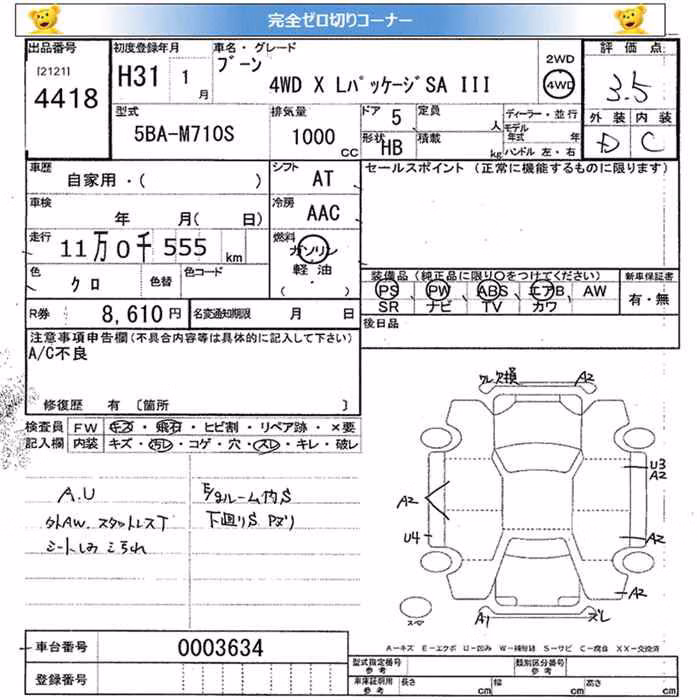 完全ゼロ切りコーナー
出品番号
[2121]
4418
初度登録年月
H31 1月
車名・グレード
ブーン
4WD X Lパッケージ SA III
2WD
4WD
評価点
3.5
外装 内装
D C
型式
5BA-M710S
排気量
1000 CC
ドア 5
定員 人
形状 HB
積載 kg
ディーラー・並行
モデル年式 年
ハンドル 左・右
車歴
自家用・( )
シフト AT
セールスポイント (正常に機能するものに限ります)
車検
年 月( 日)
冷房 AAC
走行 11万0千555 km
燃料
ガソリン
軽油
( ・ )
色 クロ
色替
色コード
装備品 (純正品に限り○をつけてください)
PS、PW、ABS、エアB、AW
SR ナビ TV カワ
新車保証書
有・無
R券 8,610円
名変通知期限 月 日
後日品
注意事項申告欄(不具合内容等は具体的に記入して下さい)
A/C不良
修復歴 有 〔箇所 〕
検査員記入欄
FW キズ・飛石・ヒビ割・リペア跡・×要
内装 キズ・汚レ・コゲ・穴・スレ・キレ・破レ
A.U
外AW. スタットレスT
シートしみ こられ
E/gルーム内S
下廻りS Pズリ
ワレ欠損
A2
U3
A2
A2
U4
A2
A2
A1
ズレ
スペア
A-キズ E-エクボ U-凹み W-補修跡 S-サビ C-腐食 XX-交換済
車台番号 0003634
登録番号
型式指定番号 参考
類別区分番号 参考
車庫証明用 参考
長さ cm 幅 cm 高さ cm